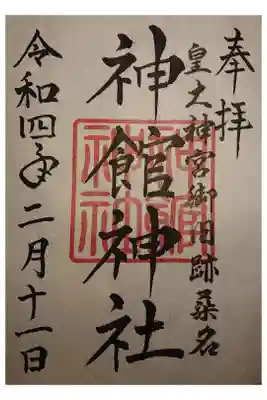 奉拝
皇大神宮御旧跡桑名
神館神社
令和四年二月十一日
神館神社